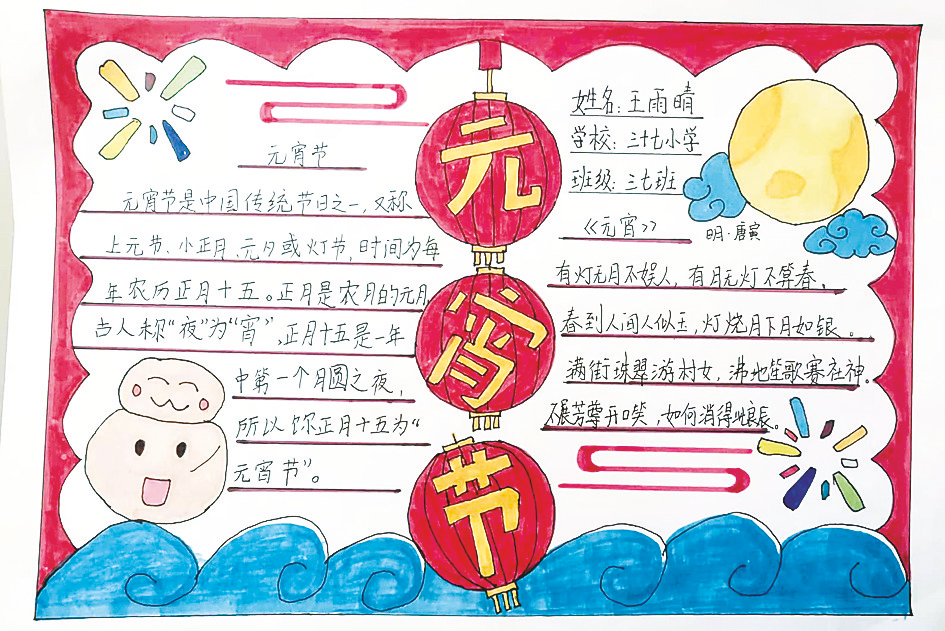 元宵节
元宵节
元宵节是中国传统节日之一，又称
上元节、小正月、元夕或灯节，时间为每
年农历正月十五。正月是农月的元月，
古人称“夜”为“宵”，正月十五是一年
中第一个月圆之夜，
所以称正月十五为“
元宵节”。
姓名：王雨晴
学校：三十七小学
班级：三七班
《元宵》
明·唐寅
有灯无月不娱人，有月无灯不算春。
春到人间人似玉，灯烧月下月如银。
满街珠翠游村女，沸地笙歌赛社神。
不展芳尊开口笑，如何消得此良辰。